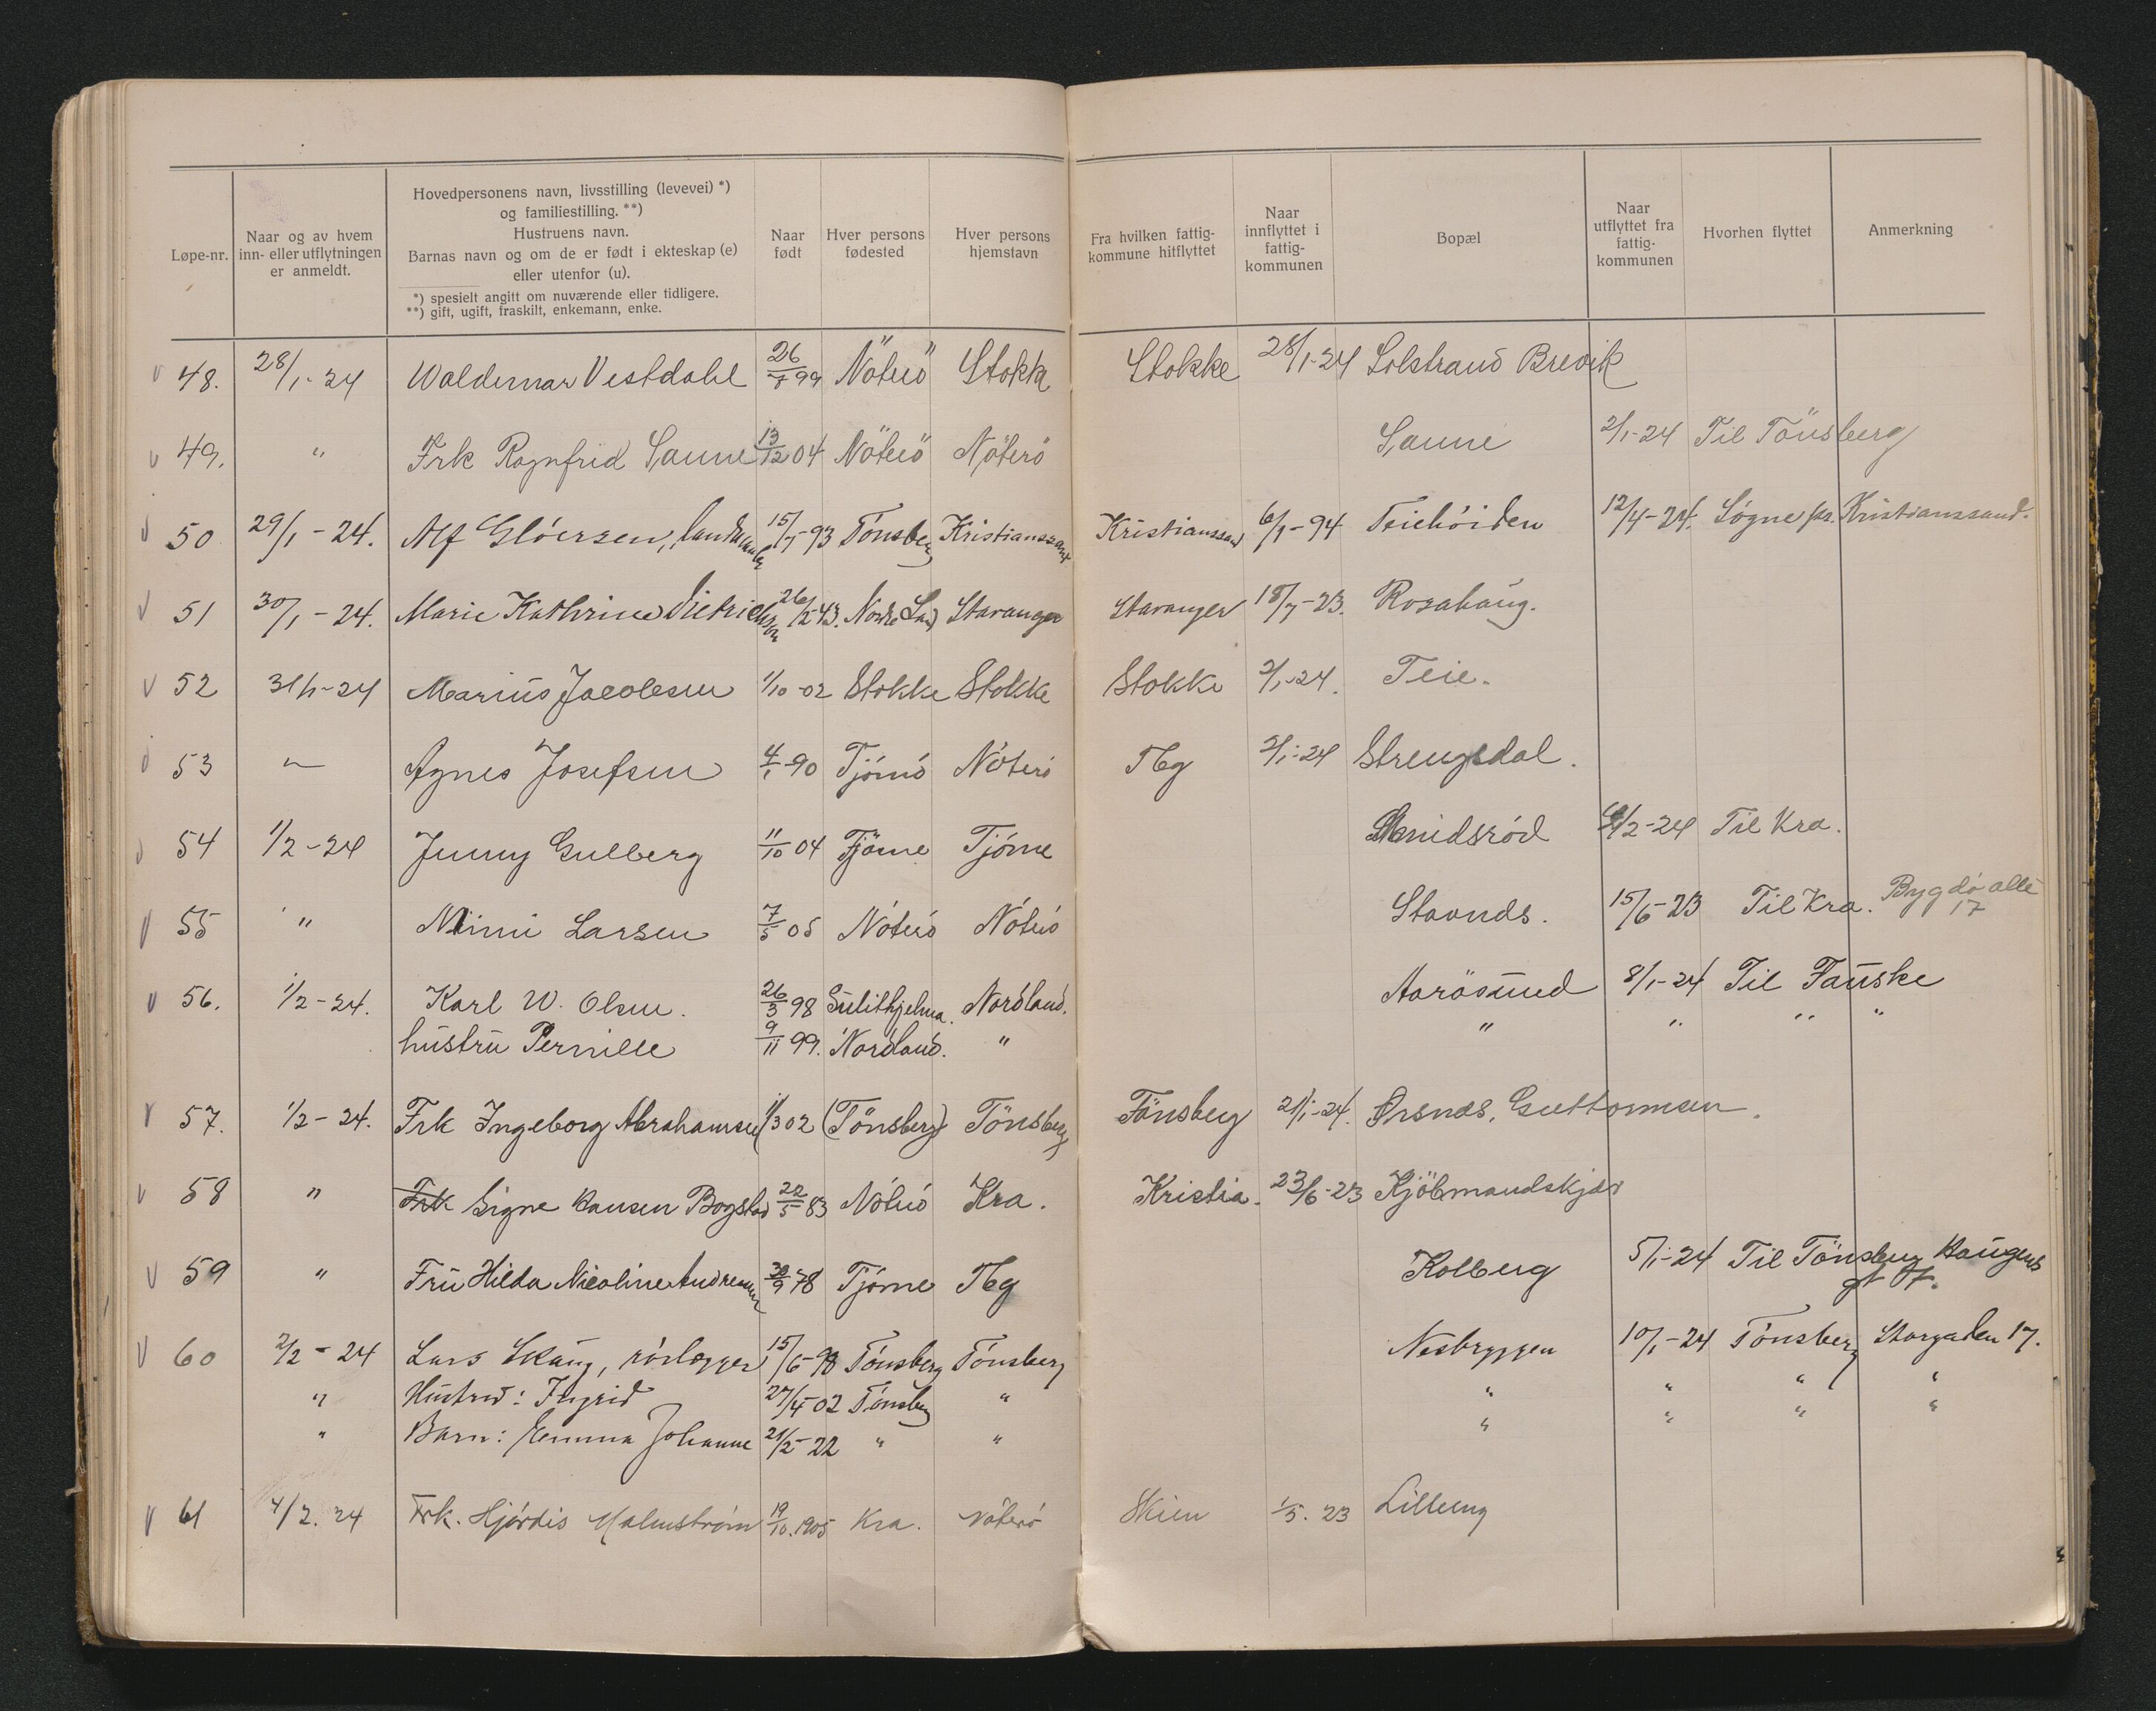 Løpe-nr.
Naar og av hvem
inn- eller utflytningen
er anmeldt.
Hovedpersonens navn, livsstilling (levevei) *)
og familiestilling. **)
Hustruens navn.
Barnas navn og om de er født i ekteskap (e)
eller utenfor (u).
*) spesielt angitt om nuværende eller tidligere.
**) gift, ugift, fraskilt, enkemann, enke.
Naar
født
Hver persons
fødested
Hver persons
hjemstavn
Fra hvilken fattig-
kommune hitflyttet
Naar
innflyttet i
fattig-
kommunen
Bopæl
Naar
utflyttet fra
fattig-
kommunen
Hvorhen flyttet
Anmerkning
48. 28/1-24 Waldemar Vestdahl 26/7 99 Nöterö Stokke Stokke 28/1-24 Solstrand Brevik
49. " Frk Ragnfrid Saune 13/12 04 Nöterö Nöterö Saune 2/1-24 Til Tönsberg
50 29/1-24. Alf Glóersen, 15/7-93 Tónsberg Kristianssand Kristianssand 6/1-94 Teiehóiden 12/4-24. Sógne pr. Kristianssand.
51 30/1-24. Marie Kathrine Dietrichson 26/12 43. Nordre Land Stavanger Stavanger 18/7-23. Rosahaug.
52 31/1-24 Marius Jacobsen 1/10-02 Stokke Stokke Stokke 2/1-24. Teie.
53 " Agnes Josefsen 4/1-90 Tjómó Nóteró Tbg 2/1-24 Strengsdal.
54 1/2-24 Jenny Gulberg 11/10 04 Tjöme Tjóme Smidsród /2-24 Til Kra.
55 " Mimi Larsen 7/5 05 Nóteró Nóteró Stavnds. 15/6-23 Til Kra. Bygdó allé
17
56. 1/2-24. Karl W. Olsen. 26/3 98 Sulithjelma. Nordland. Aarösund 8/1-24 Til Fauske
hustru Pernille 9/11 99. Nordland. " " " " "
57. 1/2-24. Frk Ingeborg Abrahamsen 1/3 02 (Tönsberg) Tönsberg Tönsberg 21/1-24. Ørsnes, Guttormsen.
58 " Frk Signe Hansen Bogstad 22/5 83 Nóteró Kra. Kristia. 23/6-23 Kjöbmandskjær
59 " Fru Hilda Nicoline Andresen /9 78 Tjóme Tbg Kolberg 5/1-24 Til Tönsberg Haugens
60 2/2-24 Lars Skaug, rórlegger 15/6-98 Tónsberg Tónsberg Nesbryggen 10/1-24 Tónsberg Storgaden 17.
" Hustru: Ingrid 27/4-02 Tónsberg " " " " "
" Barn: Emma Johanne 21/2-22 " " " " " "
61 4/2.24 Frk. Hjórdis Malmstróm 19/10.1905 Kra. Nóteró Skien 1/5.23 Lilleeng